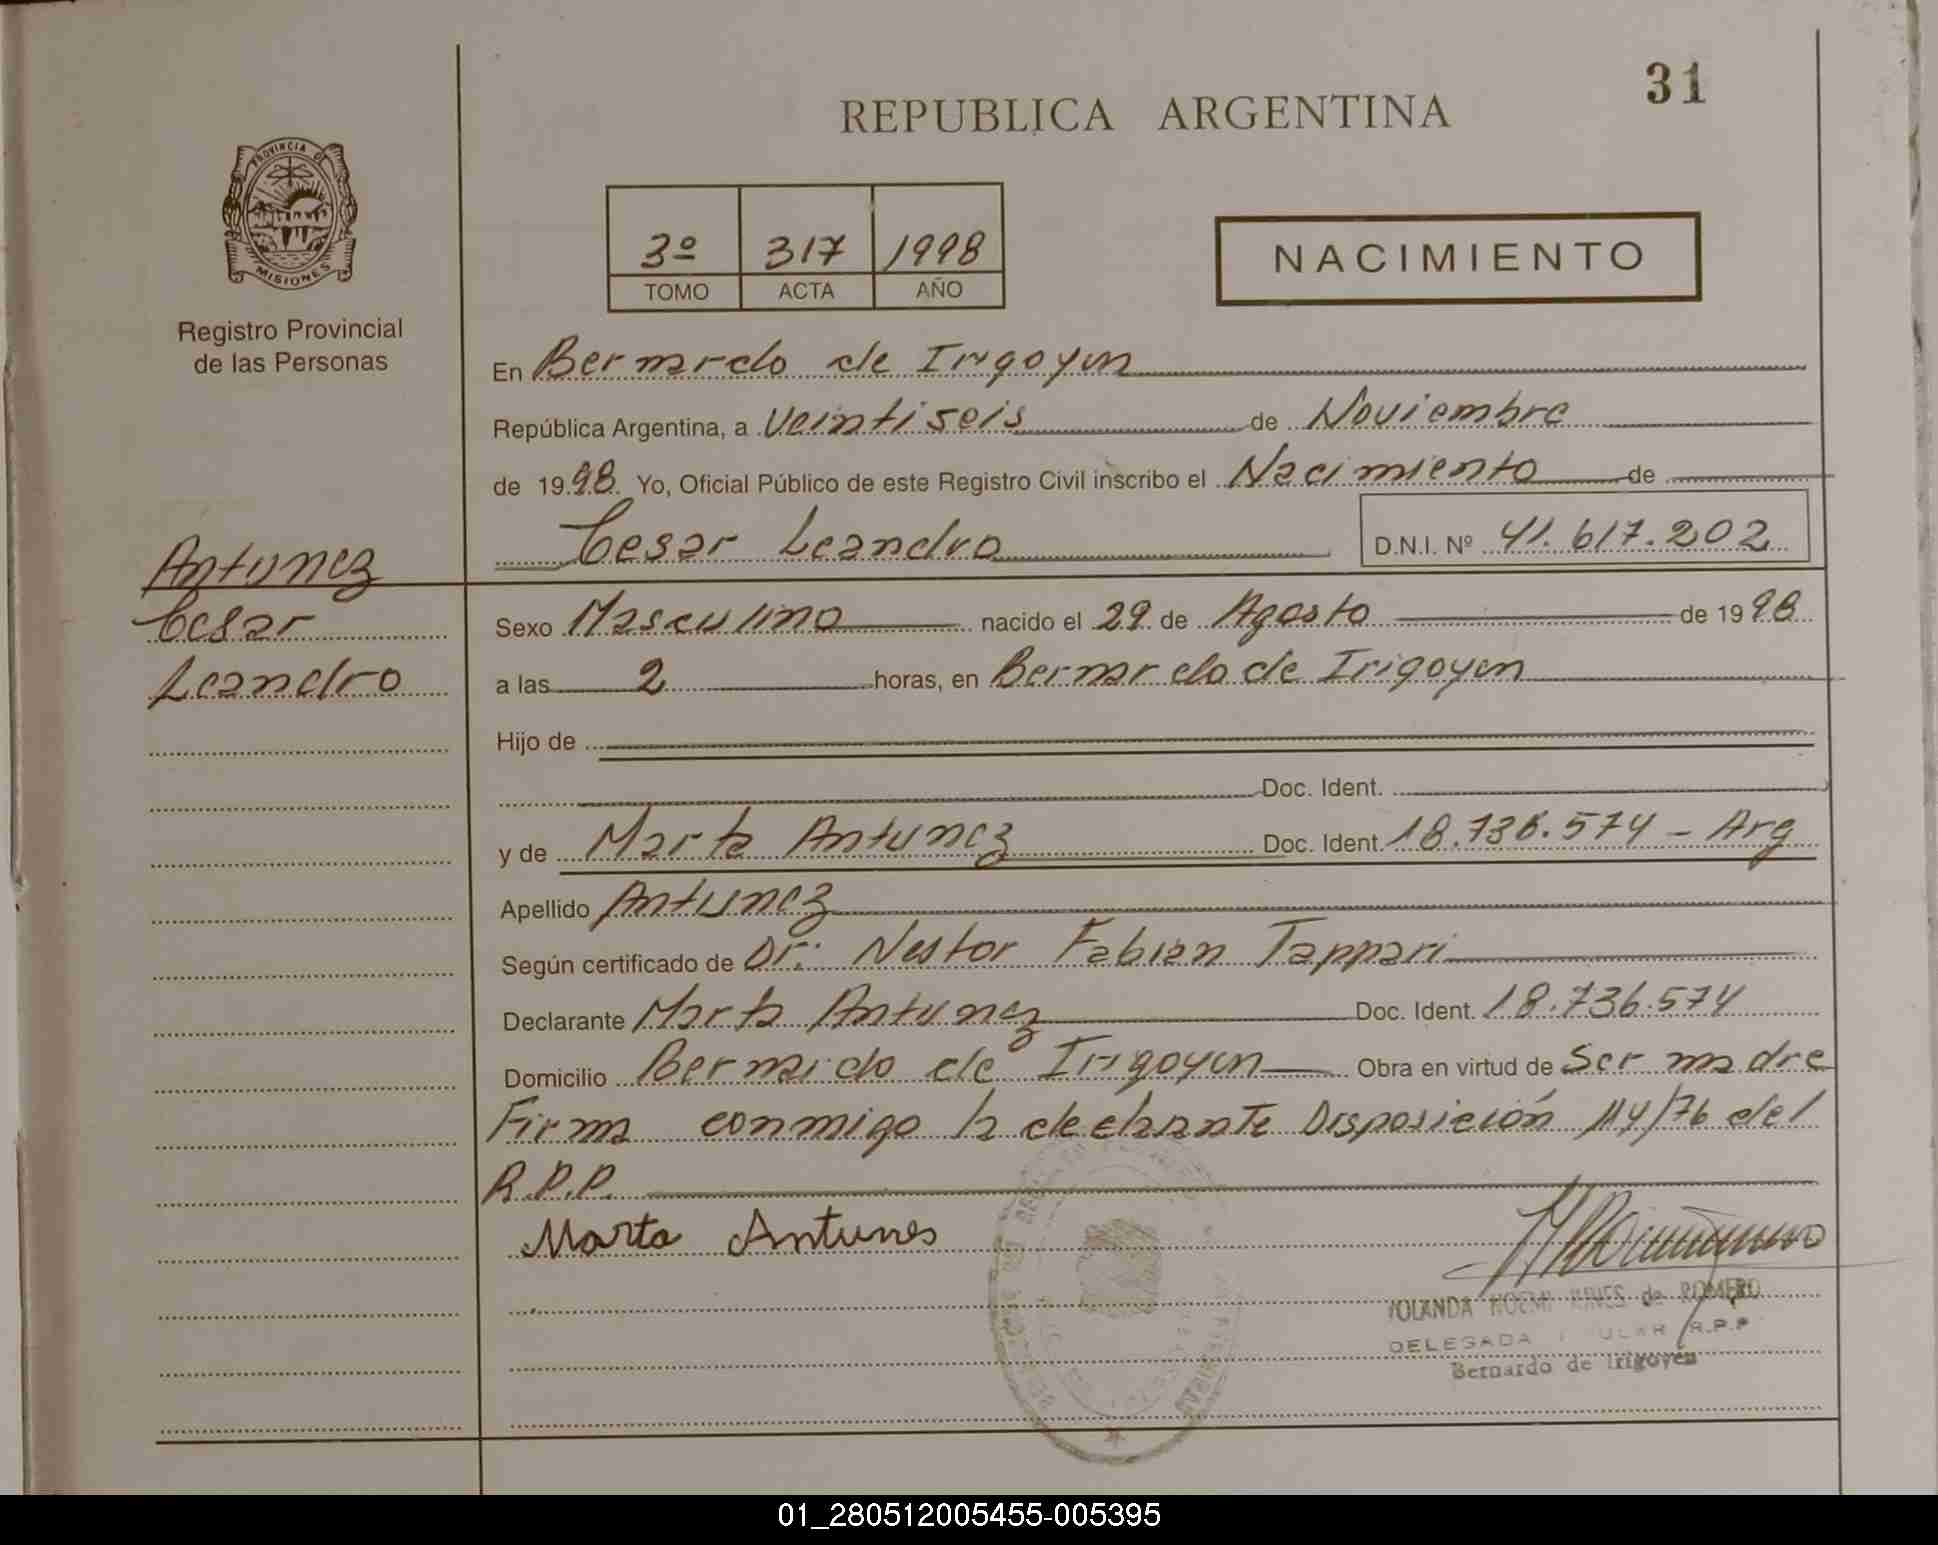 31
REPUBLICA ARGENTINA
PROVINCIA DE
MISIONES
Registro Provincial
de las Personas
3º 317 1998
TOMO ACTA AÑO
NACIMIENTO
En Bernardo de Irigoyen
República Argentina, a Veintiseis de Noviembre
de 1998 Yo, Oficial Público de este Registro Civil inscribo el Nacimiento de
Cesar Leandro D.N.I. Nº 41.617.202
Antunez
Cesar
Leandro
Sexo Masculino nacido el 29 de Agosto de 1998
a las 2 horas, en Bernardo de Irigoyen
Hijo de
Doc. Ident.
y de Marta Antunez Doc. Ident. 18.736.574 - Arg
Apellido Antunez
Según certificado de Dr: Nestor Fabian Tappari
Declarante Marta Antunez Doc. Ident. 18.736.574
Domicilio Bernardo de Irigoyen Obra en virtud de Ser madre
Firma conmigo la declarante Disposición 114/76 del
R.P.P.
Marta Antunes
YOLANDA NOEMI de ROMERO
DELEGADA R.P.P
Bernardo de Irigoyen
01_280512005455-005395